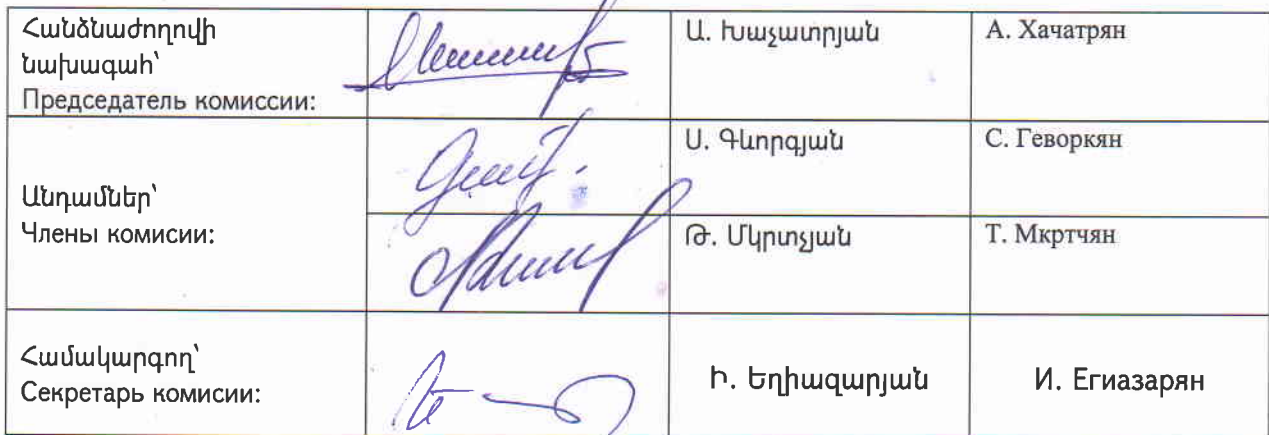 Հանձնաժողովի
նախագահ՝
Председатель комиссии:
Ա. Խաչատրյան
А. Хачатрян
Անդամներ՝
Члены комисии:
Ս. Գևորգյան
С. Геворкян
Թ. Մկրտչյան
Т. Мкртчян
Համակարգող՝
Секретарь комисии:
Ի. Եղիազարյան
И. Егиазарян